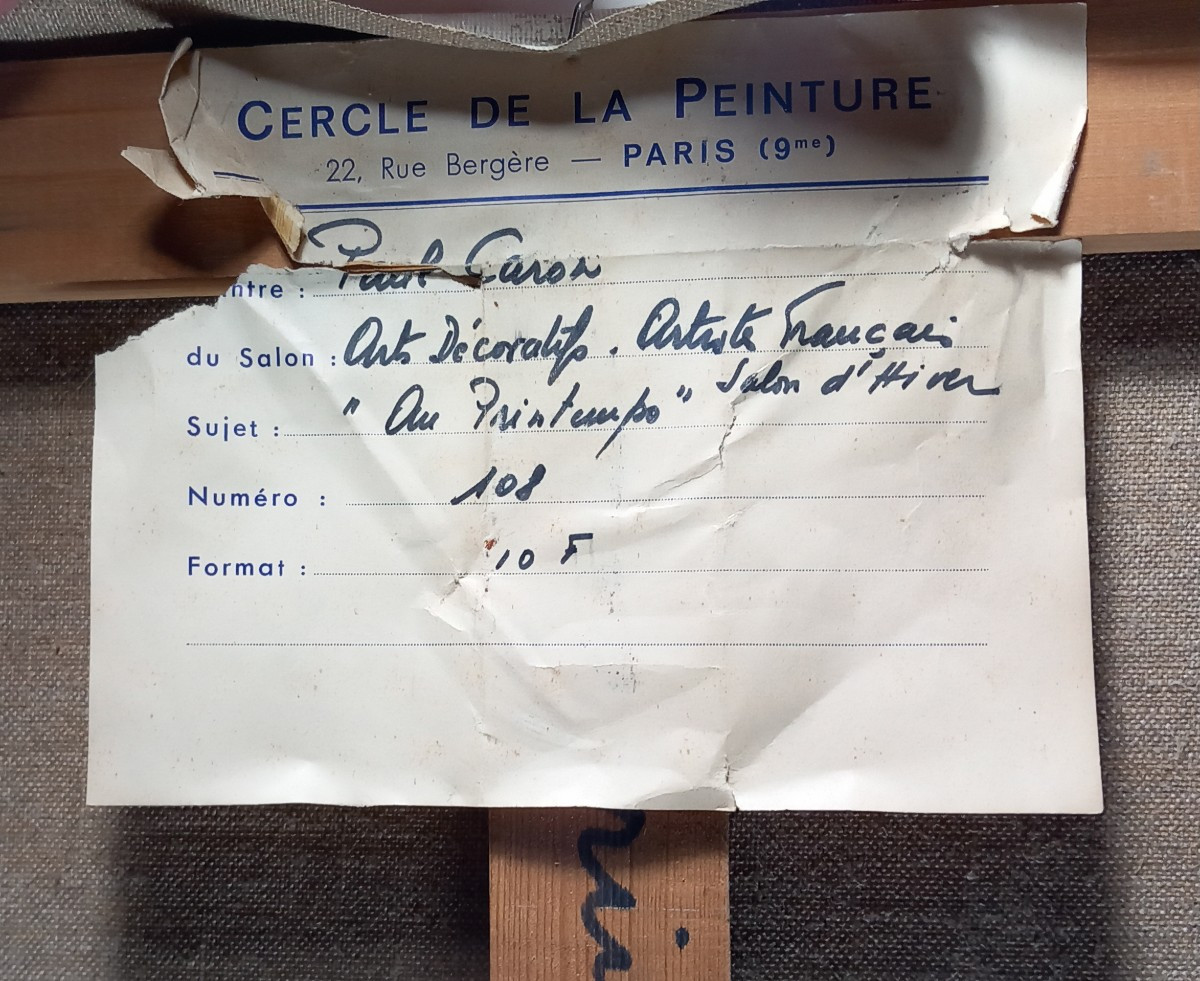 CERCLE DE LA PEINTURE
22, Rue Bergère — PARIS (9me)
ntre : Paul Caron
du Salon : Arts Décoratifs. Artiste Français
Salon d'Hiver
Sujet : "Au Printemps"
Numéro : 108
Format : 10 F